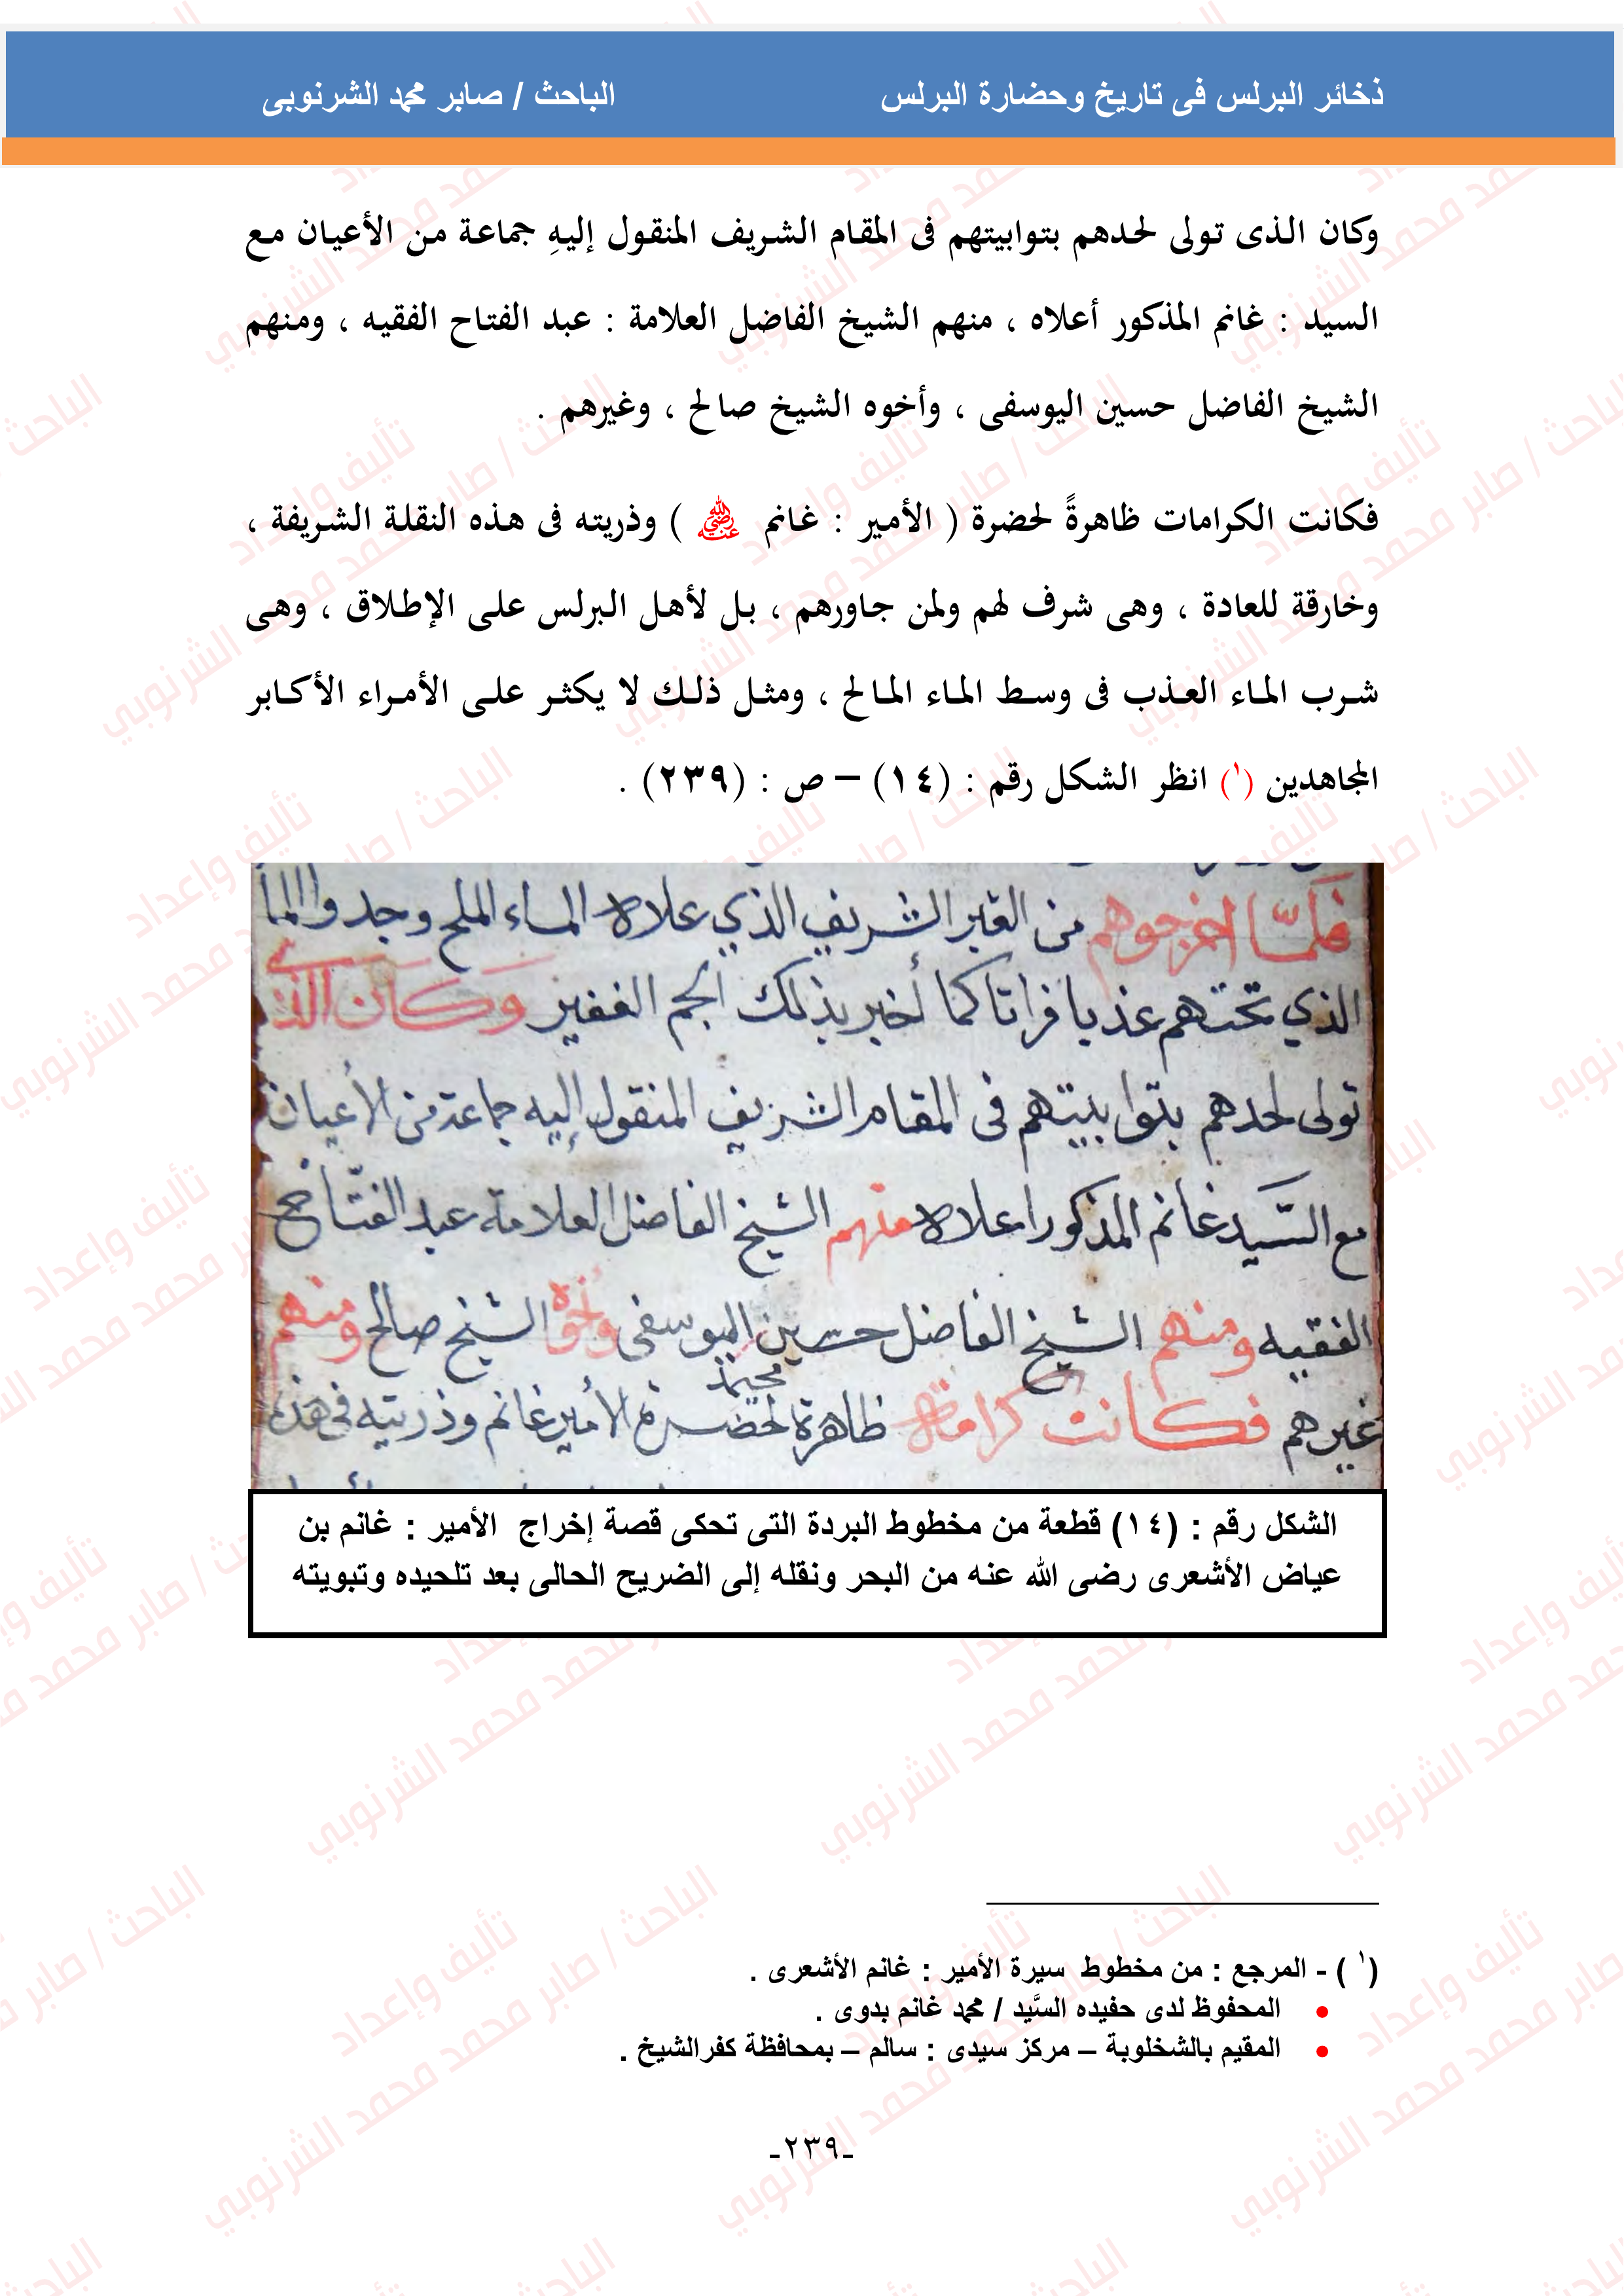 ذخائر البرلس فى تاريخ وحضارة البرلس الباحث / صابر محمد الشرنوبى
وكان الذى تولى لحدهم بتوابيتهم فى المقام الشريف المنقول إليهِ جماعة من الأعيان مع
السيد : غانم المذكور أعلاه ، منهم الشيخ الفاضل العلامة : عبد الفتاح الفقيه ، ومنهم
الشيخ الفاضل حسين اليوسفى ، وأخوه الشيخ صالح ، وغيرهم .
فكانت الكرامات ظاهرةً لحضرة ( الأمير : غانم رضي الله عنه ) وذريته فى هذه النقلة الشريفة ،
وخارقة للعادة ، وهى شرف لهم ولمن جاورهم ، بل لأهل البرلس على الإطلاق ، وهى
شرب الماء العذب فى وسط الماء المالح ، ومثل ذلك لا يكثر على الأمراء الأكابر
المجاهدين (١) انظر الشكل رقم : (١٤) – ص : (٢٣٩) .
فلمّا اخرجوهم من القبر الشريف الذي علاه الماء الملح وجدوا الماء
الذي تحتهم عذبا فراتا كما أخبر بذلك الجم الغفير وكان الذي
تولى لحدهم بتوابيتهم فى المقام الشريف المنقول إليه جماعة من الأعيان
مع السَّيد غانم المذكور اعلاه منهم الشيخ الفاضل العلامة عبد الفتّاح
الفقيه ومنهم الشيخ الفاضل حسين اليوسفى وأخوه الشيخ صالح ومنهم
غيرهم فكانت كرامة ظاهرة لحضرة الأمير غانم وذريته فى هذه
الشكل رقم : (١٤) قطعة من مخطوط البردة التى تحكى قصة إخراج الأمير : غانم بن
عياض الأشعرى رضى الله عنه من البحر ونقله إلى الضريح الحالى بعد تلحيده وتبويته
(١ ) - المرجع : من مخطوط سيرة الأمير : غانم الأشعرى .
• المحفوظ لدى حفيده السَّيد / محمد غانم بدوى .
• المقيم بالشخلوبة – مركز سيدى : سالم – بمحافظة كفرالشيخ .
-٢٣٩-